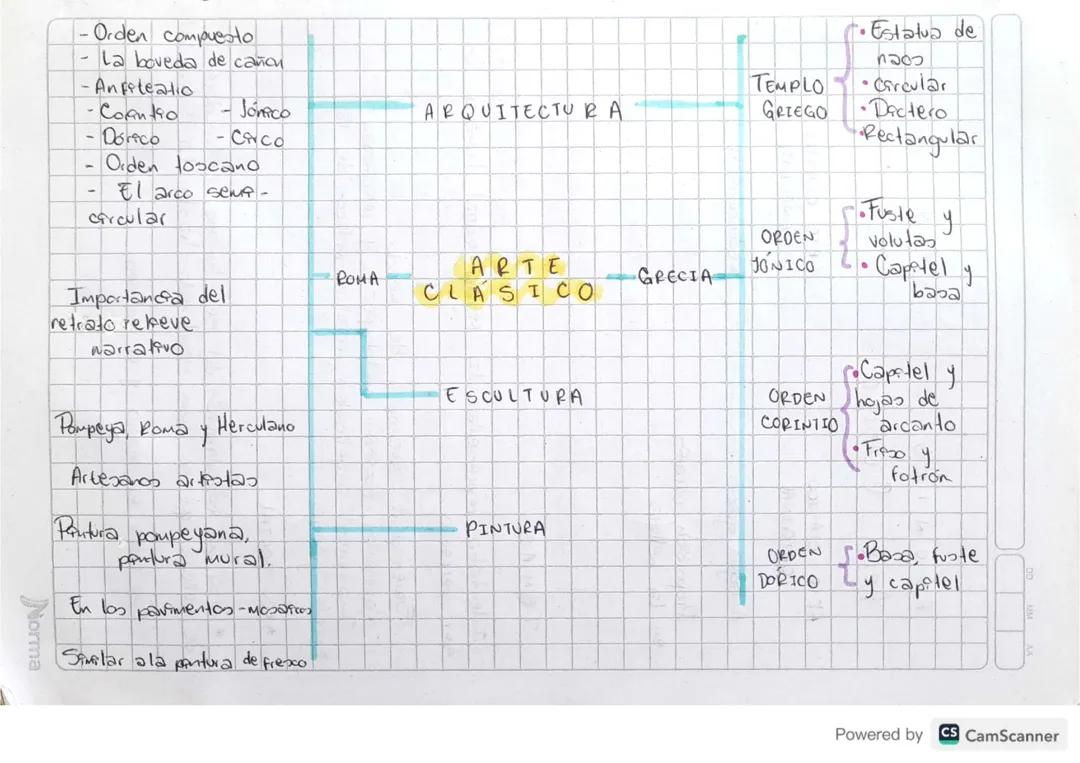 - Orden compuesto
- La boveda de cañon
- Anfiteatro
- Corintio - Jónico
- Dórico - Circo
- Orden toscano
- El arco semi-
circular
Importancia del
retrato relieve
narrativo
Pompeya, Roma y Herculano
Artesanos artistas
Pintura pompeyana,
pintura mural.
En los pavimentos - mosaicos
Similar a la pintura de fresco
ARQUITECTURA
ROMA
ARTE
CLÁSICO
GRECIA
ESCULTURA
PINTURA
TEMPLO
GRIEGO
• Estatua de
naos
• Circular
• Díctero
• Rectangular
ORDEN
JÓNICO
• Fuste y
volutas
• Capitel y
basa
ORDEN
CORINTIO
• Capitel y
hojas de
arcanto
• Friso y
fotrón
ORDEN
DÓRICO
• Basa, fuste
y capitel
Norma
DD
MM
AA
Powered by CS CamScanner